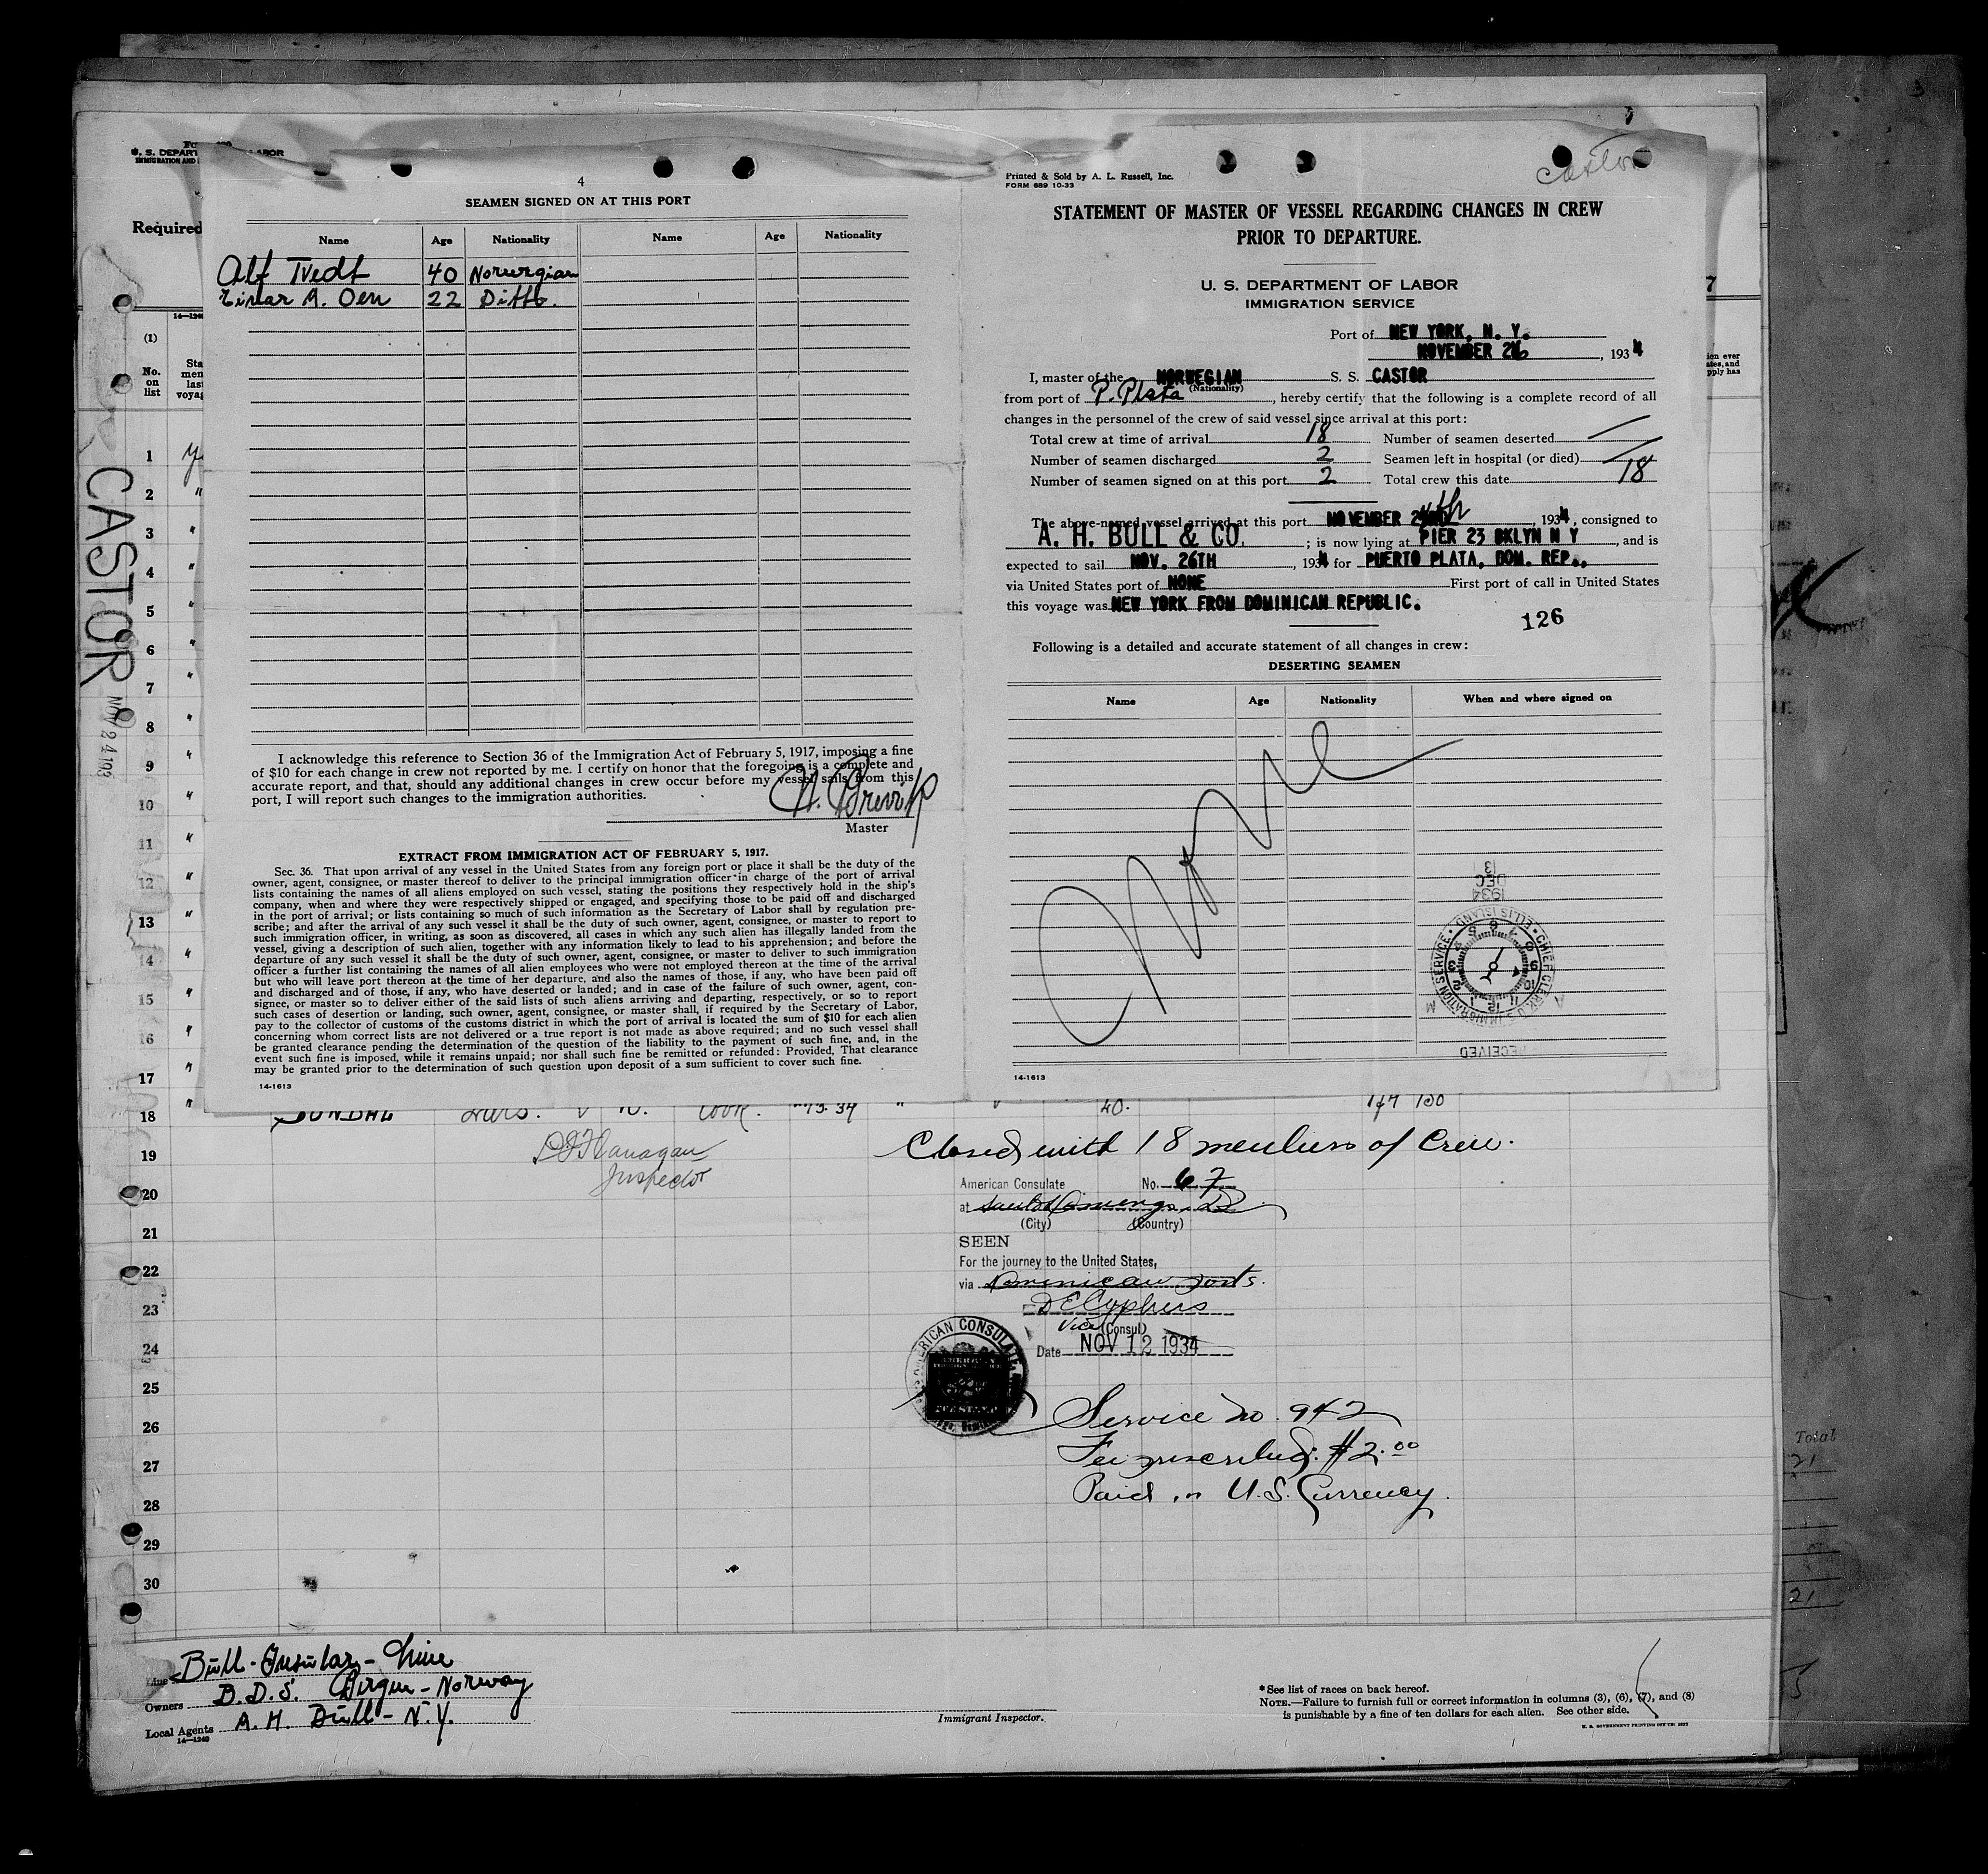 4
SEAMEN SIGNED ON AT THIS PORT
Name Age Nationality Name Age Nationality
Alf Tvedt 40 Norwegian
Einar A. Oen 22 Ditto.
I acknowledge this reference to Section 36 of the Immigration Act of February 5, 1917, imposing a fine
of $10 for each change in crew not reported by me. I certify on honor that the foregoing is a complete and
accurate report, and that, should any additional changes in crew occur before my vessel sails from this
port, I will report such changes to the immigration authorities.
Master
EXTRACT FROM IMMIGRATION ACT OF FEBRUARY 5, 1917.
Sec. 36. That upon arrival of any vessel in the United States from any foreign port or place it shall be the duty of the
owner, agent, consignee, or master thereof to deliver to the principal immigration officer in charge of the port of arrival
lists containing the names of all aliens employed on such vessel, stating the positions they respectively hold in the ship's
company, when and where they were respectively shipped or engaged, and specifying those to be paid off and discharged
in the port of arrival; or lists containing so much of such information as the Secretary of Labor shall by regulation pre-
scribe; and after the arrival of any such vessel it shall be the duty of such owner, agent, consignee, or master to report to
such immigration officer, in writing, as soon as discovered, all cases in which any such alien has illegally landed from the
vessel, giving a description of such alien, together with any information likely to lead to his apprehension; and before the
departure of any such vessel it shall be the duty of such owner, agent, consignee, or master to deliver to such immigration
officer a further list containing the names of all alien employees who were not employed thereon at the time of the arrival
but who will leave port thereon at the time of her departure, and also the names of those, if any, who have been paid off
and discharged and of those, if any, who have deserted or landed; and in case of the failure of such owner, agent, con-
signee, or master so to deliver either of the said lists of such aliens arriving and departing, respectively, or so to report
such cases of desertion or landing, such owner, agent, consignee, or master shall, if required by the Secretary of Labor,
pay to the collector of customs of the customs district in which the port of arrival is located the sum of $10 for each alien
concerning whom correct lists are not delivered or a true report is not made as above required; and no such vessel shall
be granted clearance pending the determination of the question of the liability to the payment of such fine, and, in the
event such fine is imposed, while it remains unpaid; nor shall such fine be remitted or refunded: Provided, That clearance
may be granted prior to the determination of such question upon deposit of a sum sufficient to cover such fine.
14-1613
Castor
Printed & Sold by A. L. Russell, Inc.
FORM 689 10-33
STATEMENT OF MASTER OF VESSEL REGARDING CHANGES IN CREW
PRIOR TO DEPARTURE.
U. S. DEPARTMENT OF LABOR
IMMIGRATION SERVICE
Port of NEW YORK, N. Y.
NOVEMBER 26, 1934
I, master of the NORWEGIAN S. S. CASTOR
(Nationality)
from port of P. Plata, hereby certify that the following is a complete record of all
changes in the personnel of the crew of said vessel since arrival at this port:
Total crew at time of arrival 18 Number of seamen deserted —
Number of seamen discharged 2 Seamen left in hospital (or died) —
Number of seamen signed on at this port 2 Total crew this date 18
The above-named vessel arrived at this port NOVEMBER 24th, 1934, consigned to
A. H. BULL & CO. ; is now lying at PIER 23 BKLYN N Y, and is
expected to sail NOV. 26TH, 1934 for PUERTO PLATA, DOM. REP.,
via United States port of NONE First port of call in United States
this voyage was NEW YORK FROM DOMINICAN REPUBLIC.
126
Following is a detailed and accurate statement of all changes in crew:
DESERTING SEAMEN
Name Age Nationality When and where signed on
None
1934
DEC
13
CHIEF CLERK U. S. IMMIGRATION SERVICE • ELLIS ISLAND
RECEIVED
14-1613
Required
(1)
No.
on
list
CASTOR
NOV 24 193
1
2 "
3 "
4 "
5 "
6 "
7 "
8 "
9 "
10 "
11 "
12 "
13 "
14 "
15 "
16 "
17 "
18 " Cook. 40.
19
20
21
22
23
24
25
26
27
28
29
30
D J Flanagan
Inspector
Closed with 18 members of Crew.
American Consulate No. 67
at Santo Domingo, D.R.
(City) (Country)
SEEN
For the journey to the United States,
via Dominican ports.
Vice (Consul)
Date NOV 12 1934
AMERICAN CONSULATE
Service no. 942
Fee prescribed: $2.00
Paid in U.S. Currency.
Line Bull-Insular-Line
Owners B.D.S. Bergen-Norway
Local Agents A. H. Bull-N.Y.
14-1240
Immigrant Inspector.
* See list of races on back hereof.
NOTE.—Failure to furnish full or correct information in columns (3), (6), (7), and (8)
is punishable by a fine of ten dollars for each alien. See other side.
Total
21
21